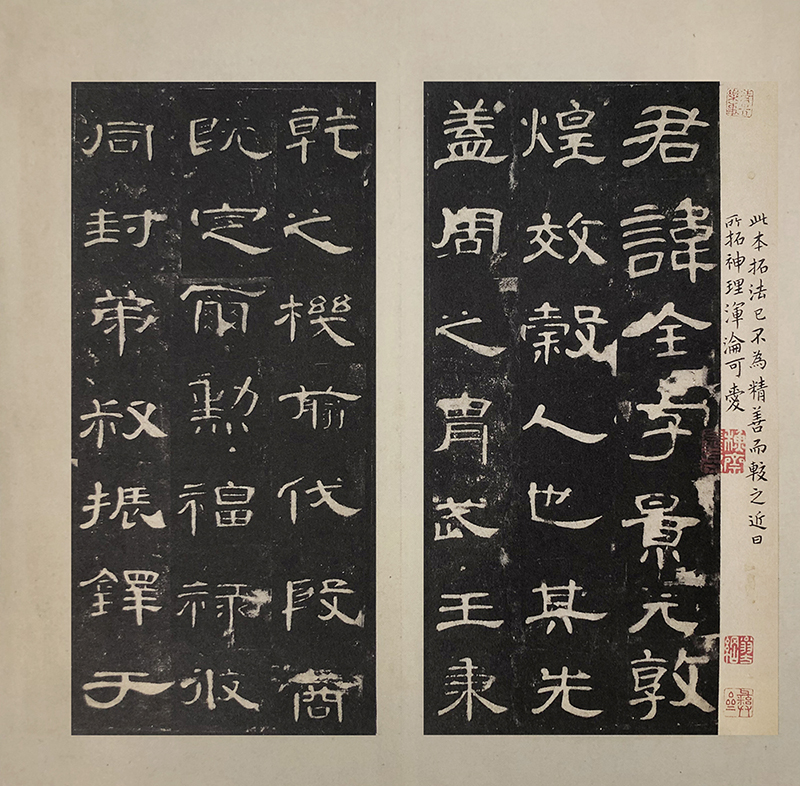 此本拓法已不為精善而較之近日
所拓神理渾淪可愛
君諱全字景完敦
煌效穀人也其先
蓋周之胄武王秉
乾之機前伐殷商
既定爾勳福祿攸
同封弟叔振鐸于